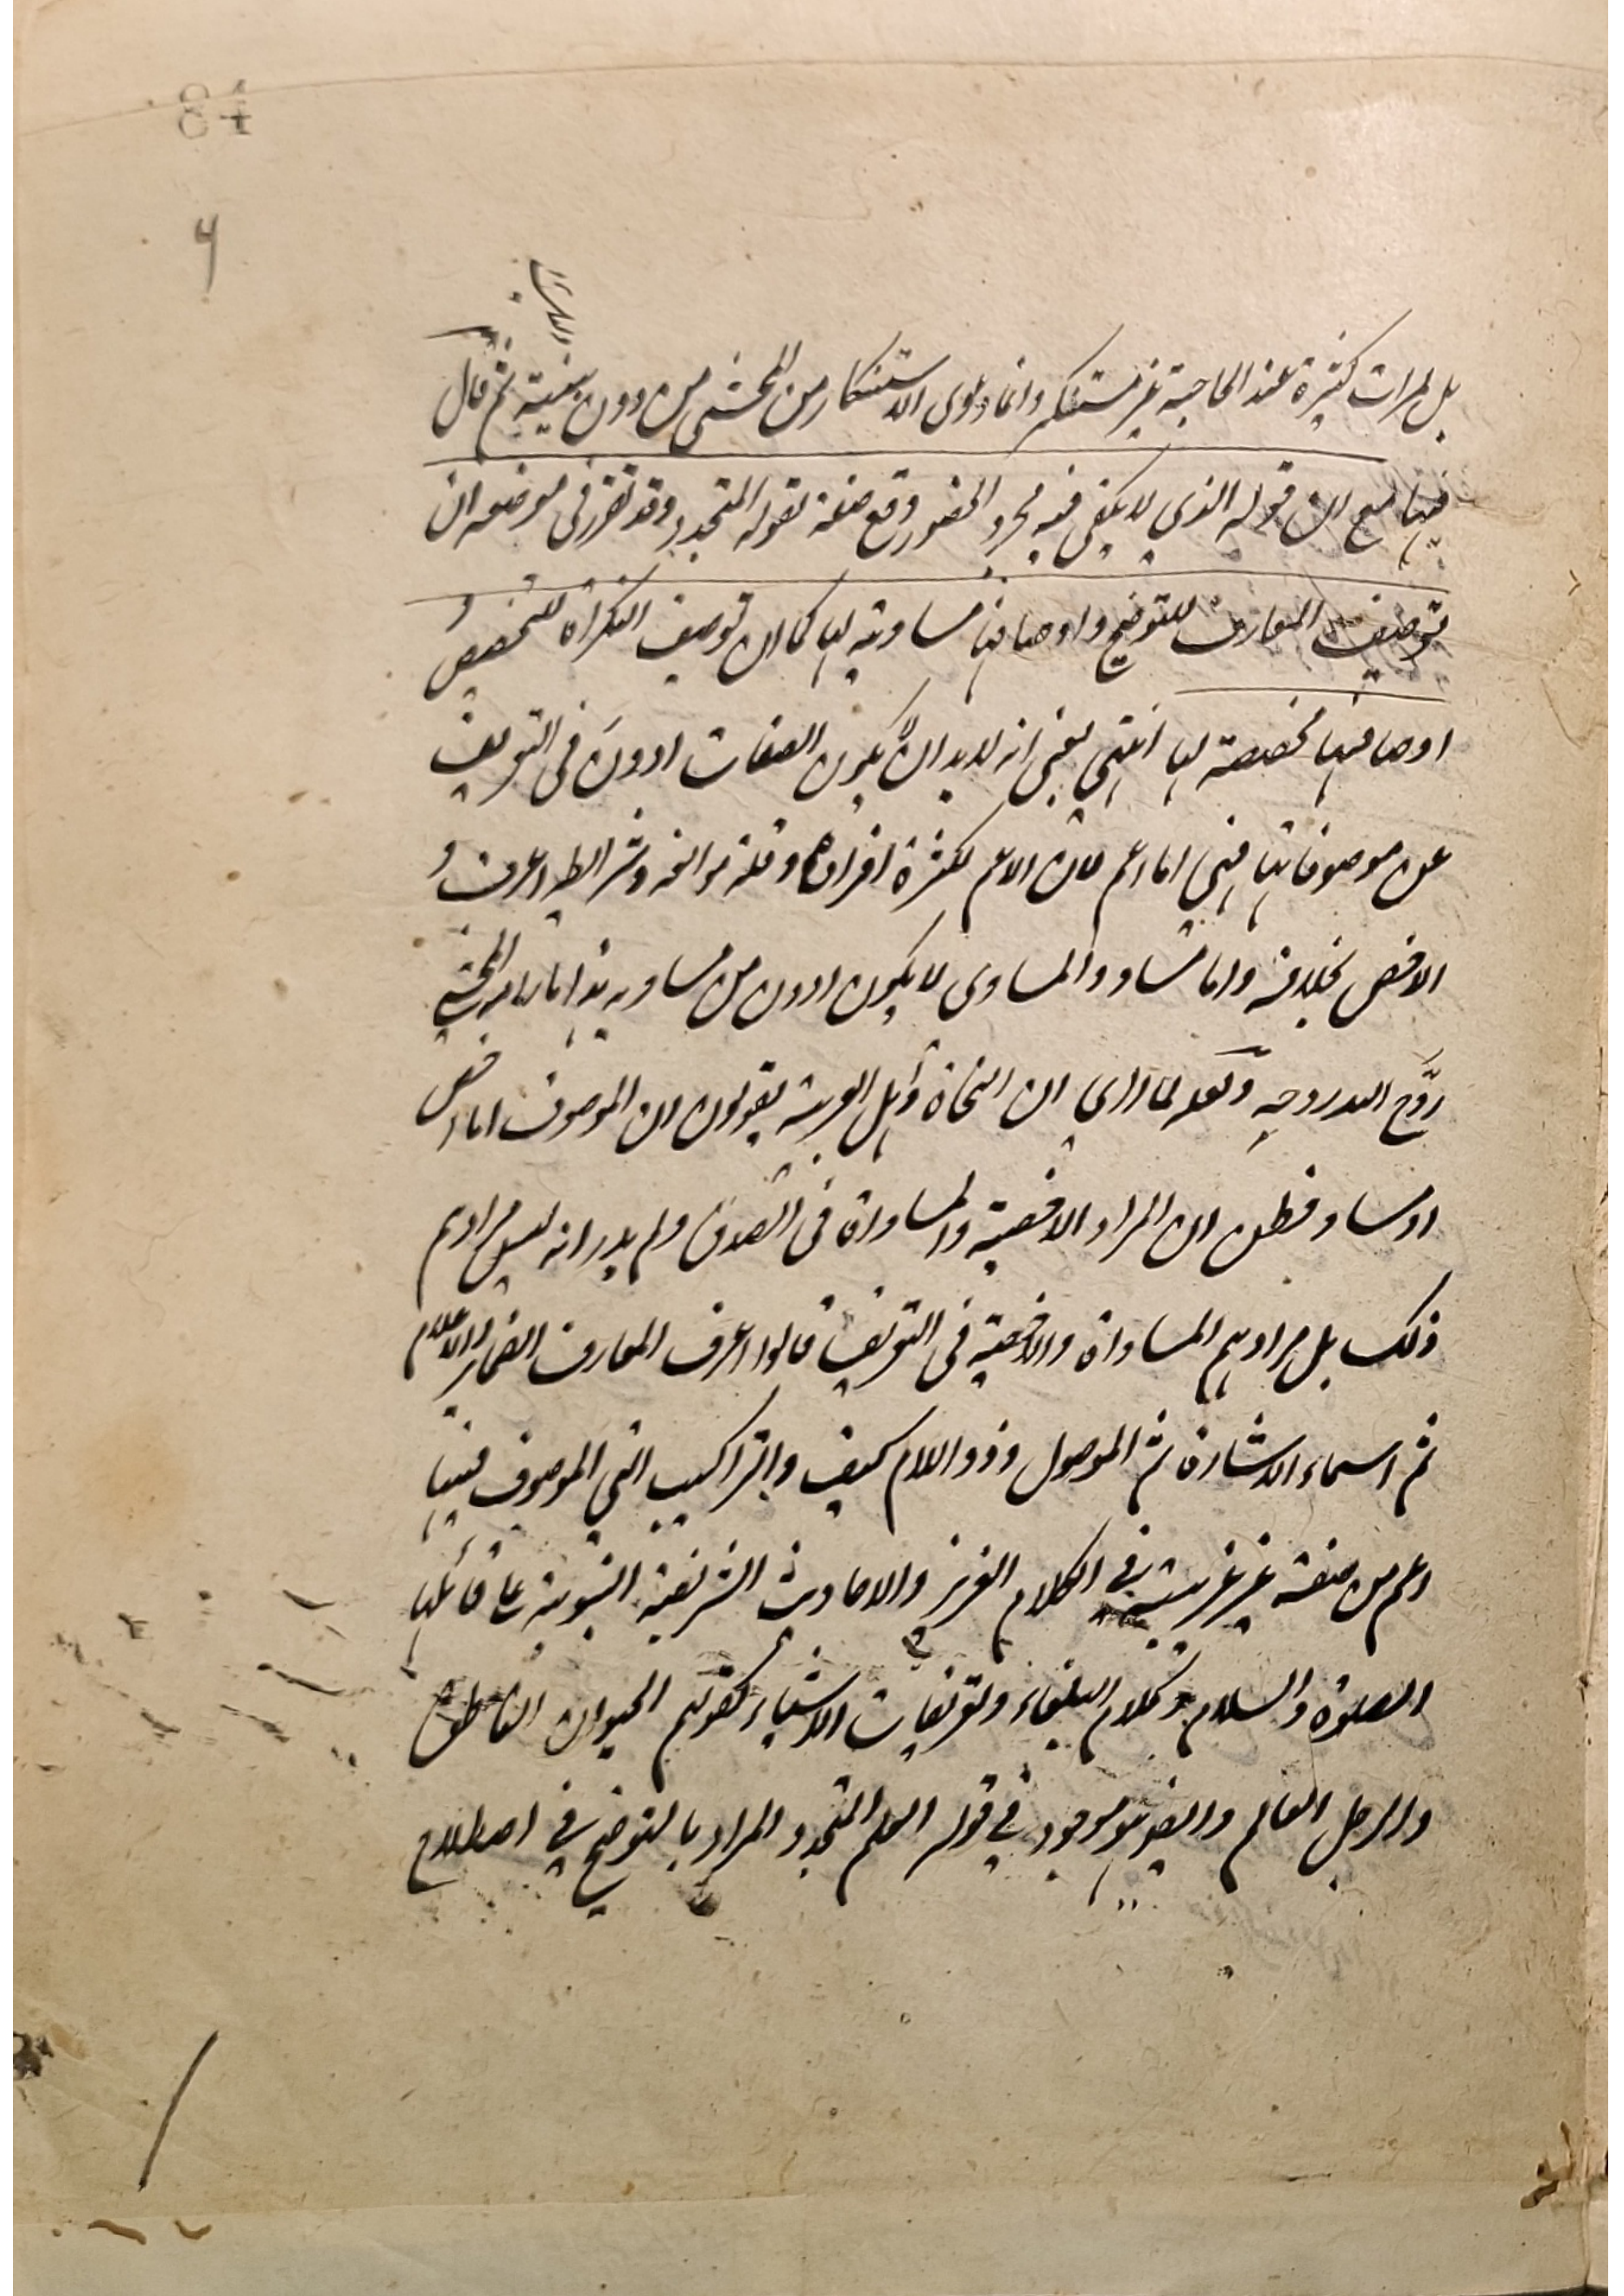 84
۶
بل لمرات كثيرة عند الحاجة غير مستنكر وانما دعوى الاستنكار من المحشى من دون بينة ثم قال
فيها مع ان قوله الذي لا يكفى فيه مجرد الحضور وقع صفة لقوله المتجدد وقد تقرر فى موضعه ان
توصيف المعارف للتوضيح واوصافها مساوية لها كما ان توصيف النكرات للتخصيص و
اوصافها مخصصة لها انتهى يعنى انه لابد ان لا يكون الصفات ادون فى التعريف
عن موصوفاتها فهي اما اعم فان الاعم لكثرة افراده وقلة موانعه وشرائطه اعرف و
الاخص بخلافه واما مساو والمساوى لا يكون ادون من مساويه هذا ما رامه المحشى
روَّج الله روحه ولعله لما راى ان النحاة واهل العربية يقولون ان الموصوف اما اخص
او مساو فظن ان المراد الاخصية والمساواة فى الصدق ولم يدر انه ليس مرادهم
ذلك بل مرادهم المساواة والاخصية فى التعريف قالوا اعرف المعارف الضمائر والاعلام
ثم اسماء الاشارة ثم الموصول وذو اللام كيف والتراكيب التي الموصوف فيها
اعم من صفته غير غريبة في الكلام العزيز والاحاديث الشريفة النبوية على قائلها
الصلوة والسلام وكلام البلغاء وتعريفات الاشياء كقولهم الحيوان الناطق
والرجل العالم وايضا هو موجود في قوله العلم المتجدد والمراد بالتوضيح في اصطلاح